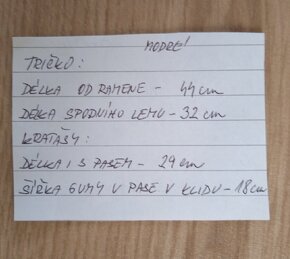 MODRÉ!
TRIČKO:
DÉLKA OD RAMENE - 44cm
DÉLKA SPODNÍHO LEMU - 32 cm
KRAŤASY:
DÉLKA I S PASEM - 29 cm
ŠÍŘKA GUMY V PASE V KLIDU - 18cm